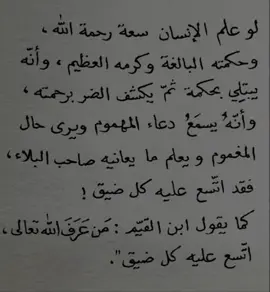 لو علم الإنسان سعة رحمة الله،
وحكمته البالغة وكرمه العظيم، وأنّه
يبتلِي بحكمة ثمّ يكشف الضر برحمته،
وأنّهُ يسمَعُ دعاء المهموم ويرى حال
المغموم ويعلم ما يعانيه صاحب البلاء،
فقد اتّسع عليه كل ضيق!
كما يقول ابن القيّم: مَن عَرَفَ الله تعالى،
اتّسع عليه كل ضيق".